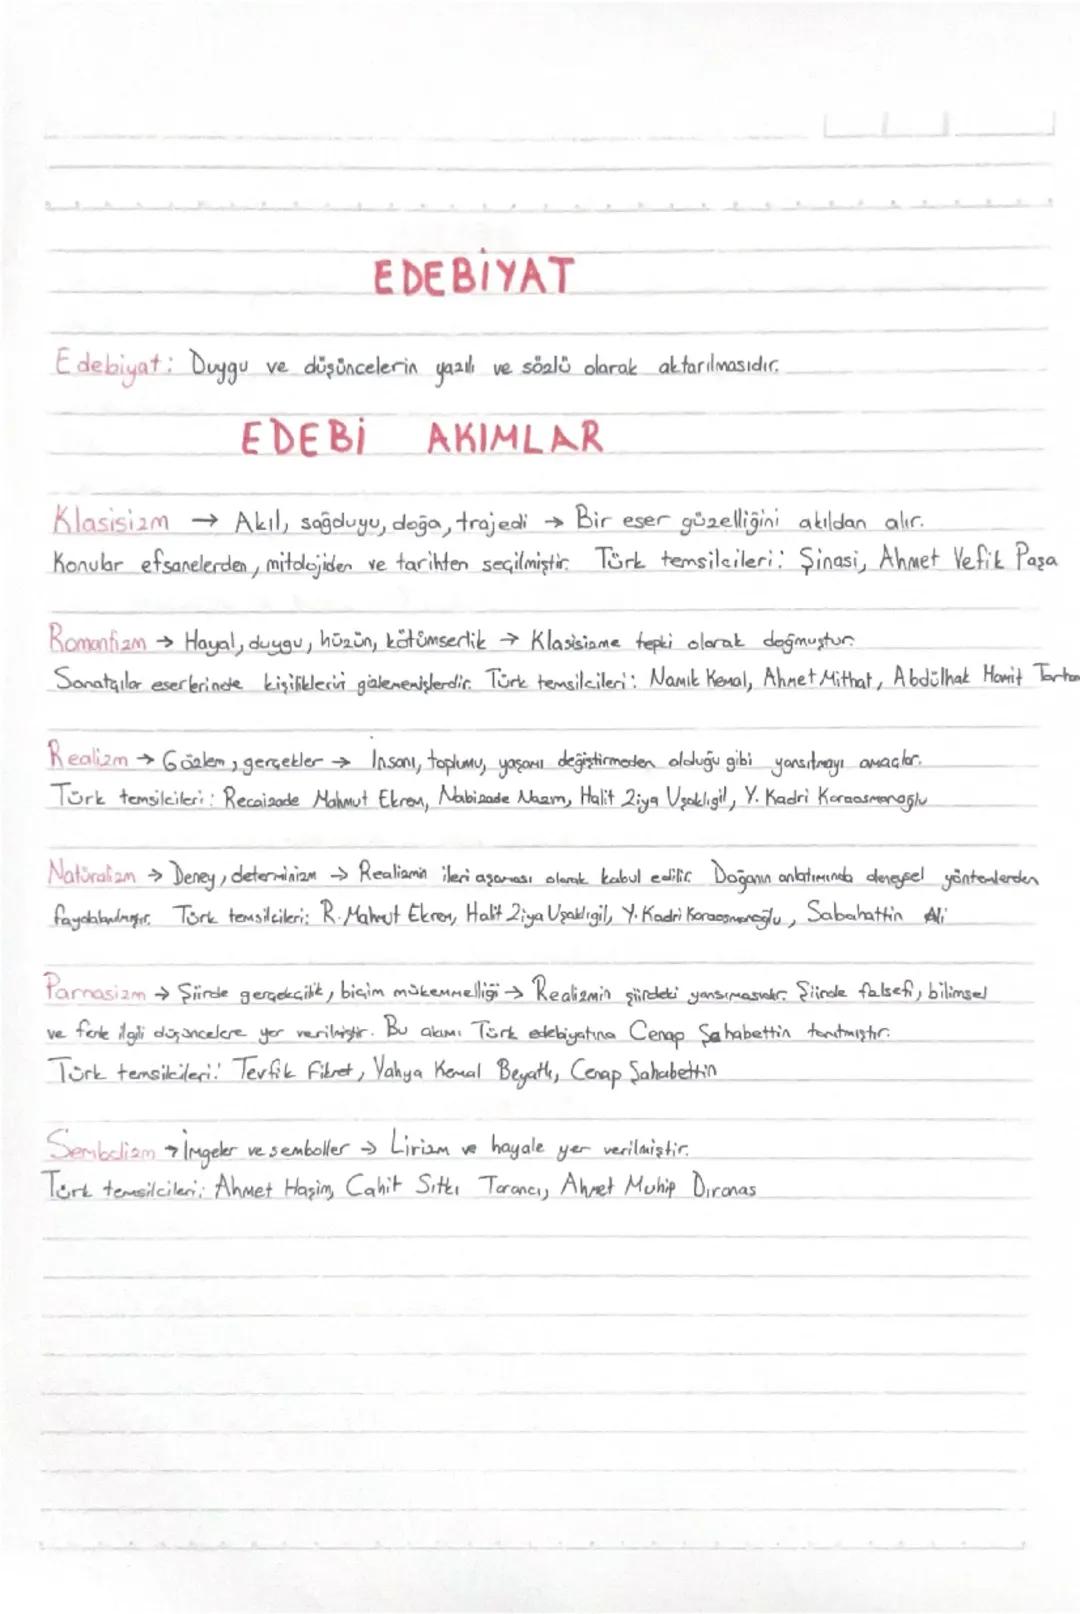 EDEBİYAT
Edebiyat: Duygu ve düşüncelerin yazılı ve sözlü olarak aktarılmasıdır.
EDEBİ AKIMLAR
Klasisizm → Akıl, sağduyu, doğa, trajedi → Bir eser güzelliğini akıldan alır.
Konular efsanelerden, mitolojiden ve tarihten seçilmiştir. Türk temsilcileri: Şinasi, Ahmet Vefik Paşa
Romantizm → Hayal, duygu, hüzün, kötümserlik → Klasisizme tepki olarak doğmuştur.
Sanatçılar eserlerinde kişiliklerini gizlememişlerdir. Türk temsilcileri: Namık Kemal, Ahmet Mithat, Abdülhak Hamit Tarhan
Realizm → Gözlem, gerçekler → İnsanı, toplumu, yaşamı değiştirmeden olduğu gibi yansıtmayı amaçlar.
Türk temsilcileri: Recaizade Mahmut Ekrem, Nabizade Nazım, Halit Ziya Uşaklıgil, Y. Kadri Karaosmanoğlu
Natüralizm → Deney, determinizm → Realizmin ileri aşaması olarak kabul edilir. Doğanın anlatımında deneysel yöntemlerden
faydalanılmıştır. Türk temsilcileri: R. Mahmut Ekrem, Halit Ziya Uşaklıgil, Y. Kadri Karaosmanoğlu, Sabahattin Ali
Parnasizm → Şiirde gerçekçilik, biçim mükemmelliği → Realizmin şiirdeki yansımasıdır. Şiirde felsefi, bilimsel
ve fenle ilgili düşüncelere yer verilmiştir. Bu akımı Türk edebiyatına Cenap Şahabettin tanıtmıştır.
Türk temsilcileri: Tevfik Fikret, Yahya Kemal Beyatlı, Cenap Şahabettin
Sembolizm → İmgeler ve semboller → Lirizm ve hayale yer verilmiştir.
Türk temsilcileri: Ahmet Haşim, Cahit Sıtkı Tarancı, Ahmet Muhip Dıranas